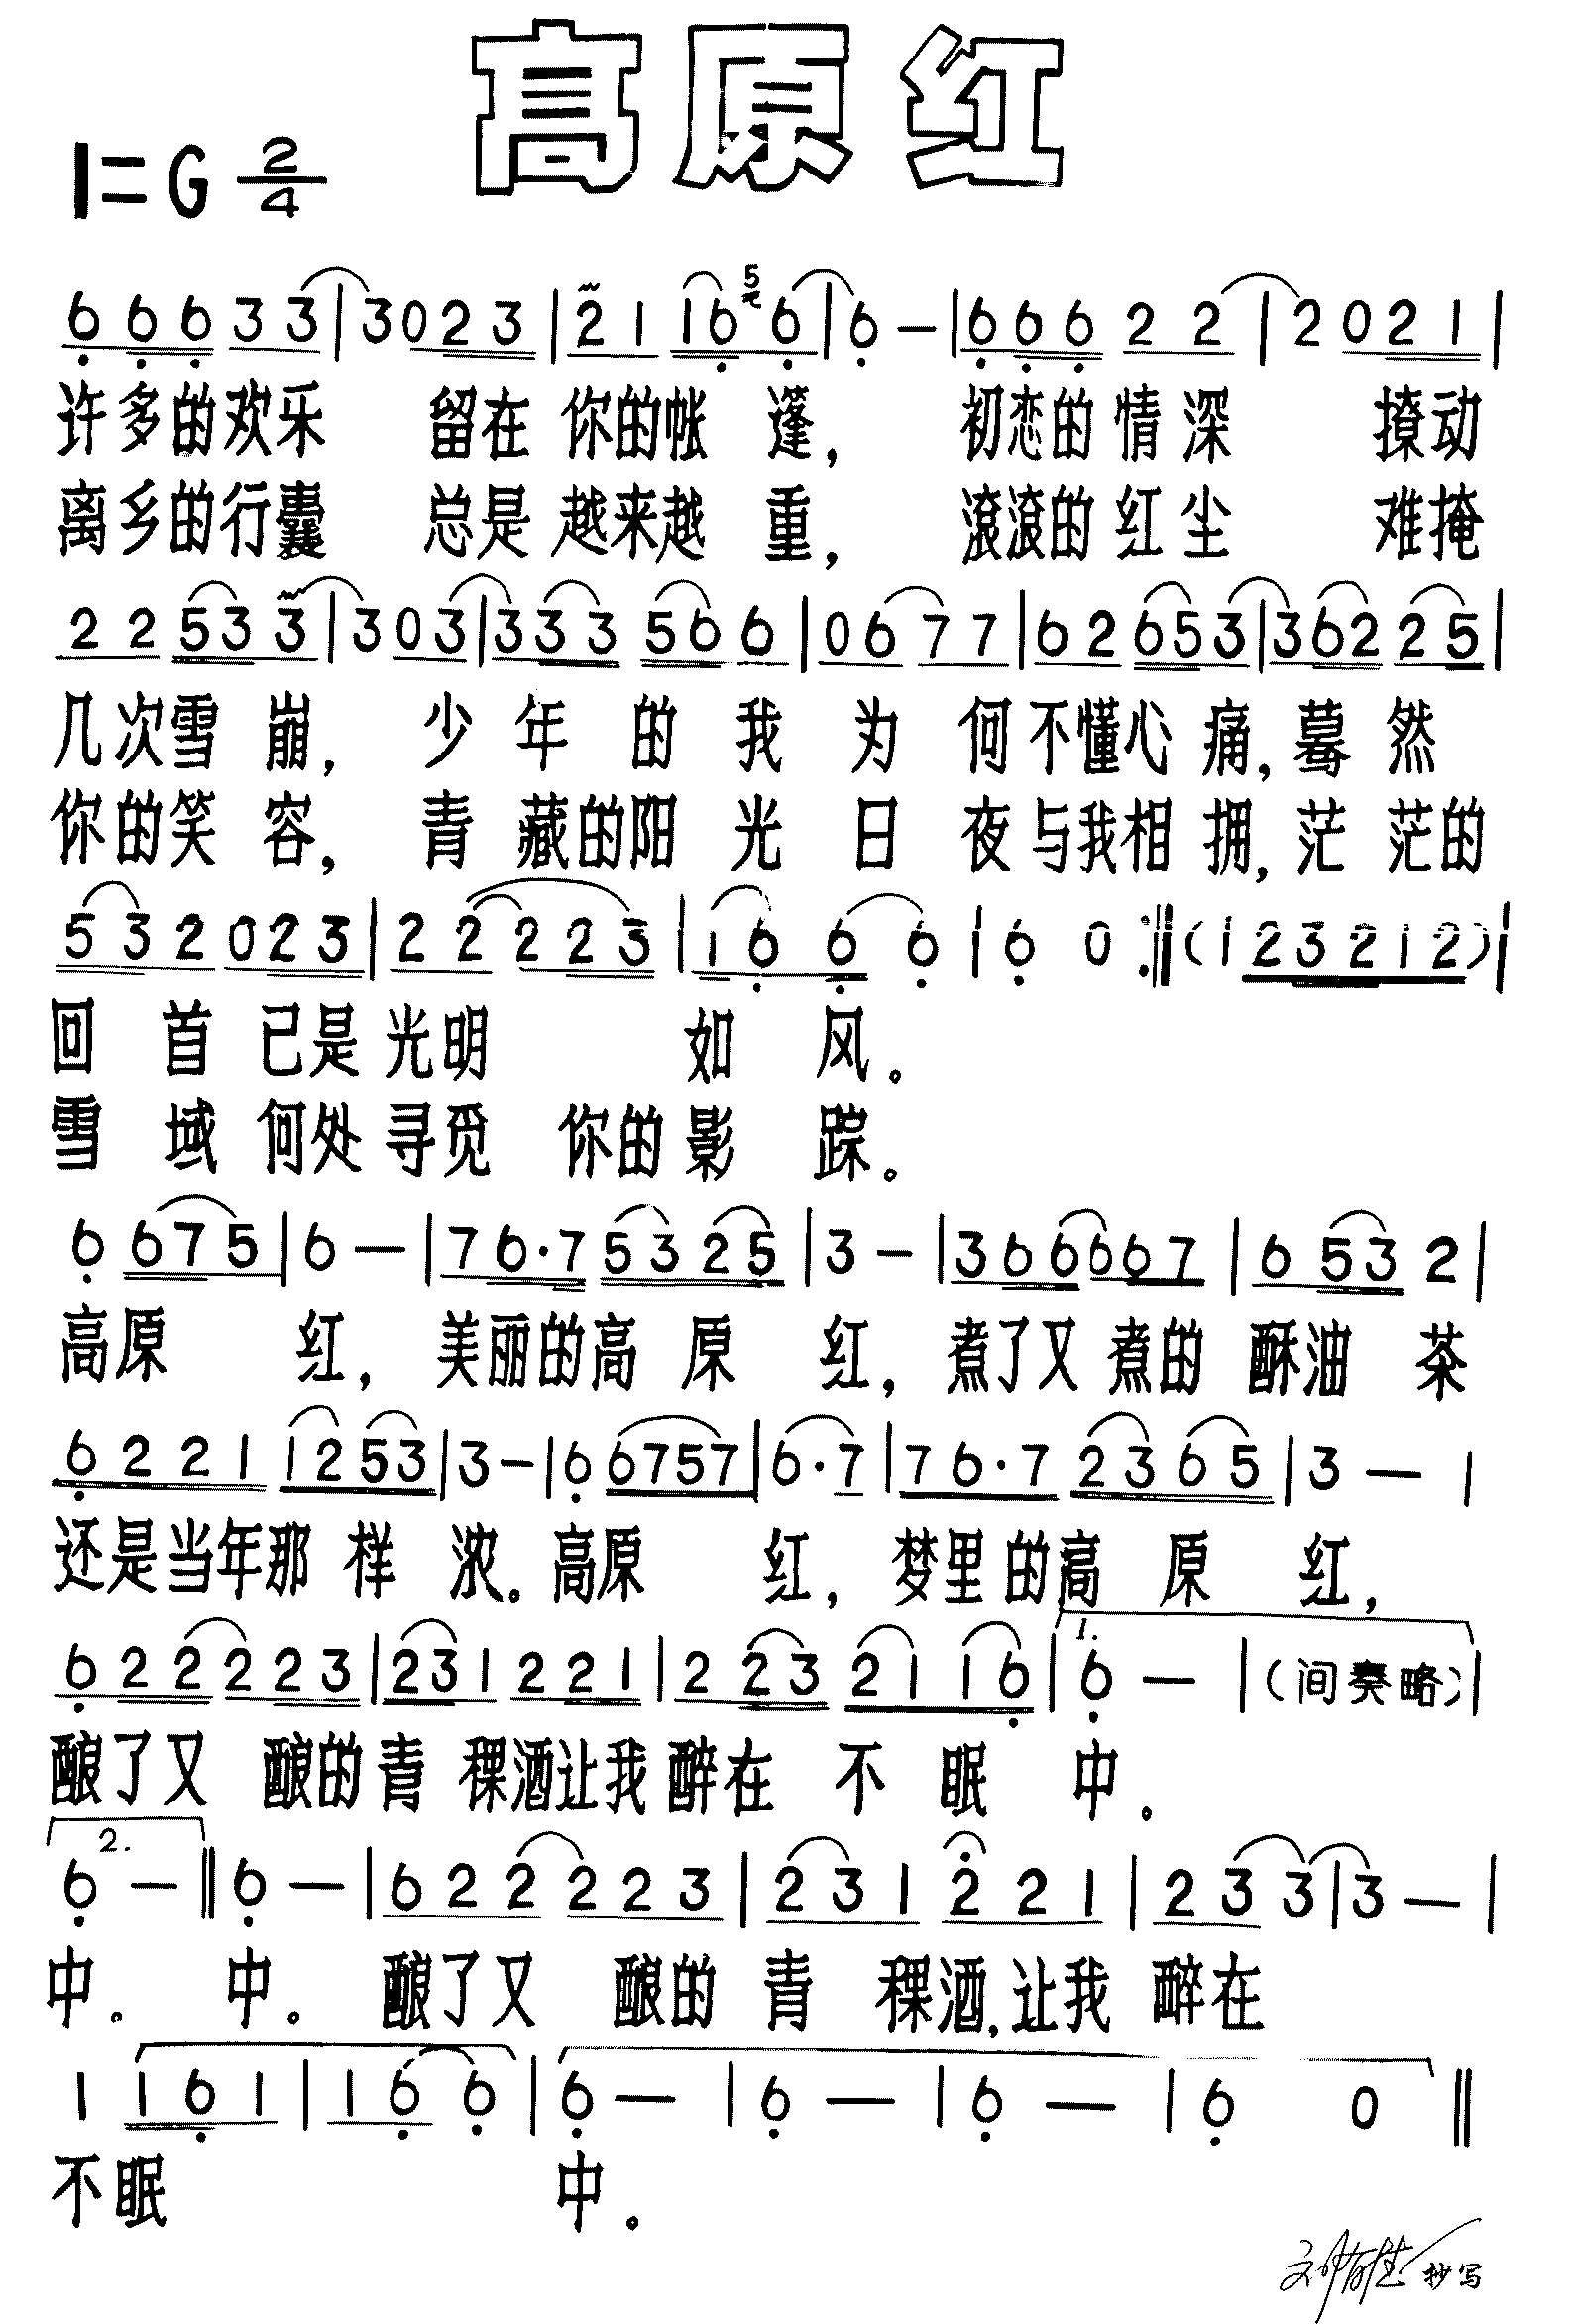 高原红
1=G 2/4
6 6 6 3 3 | 3 0 2 3 | 2 1 1 6 5 6 | 6 — | 6 6 6 2 2 | 2 0 2 1 |
许多的欢乐 留在 你的帐 篷, 初恋的情深 撩动
离乡的行囊 总是 越来越 重, 滚滚的红尘 难掩
2 2 5 3 3 | 3 0 3 | 3 3 3 5 6 6 | 0 6 7 7 | 6 2 6 5 3 | 3 6 2 2 5 |
几次雪 崩, 少 年 的 我 为 何不懂心 痛,蓦 然
你的笑 容, 青 藏的阳 光 日 夜与我相 拥,茫 茫的
5 3 2 0 2 3 | 2 2 2 2 3 | 1 6 6 6 | 6 0 :‖ ( 1 2 3 2 1 2 ) |
回 首 已是光明 如 风。
雪 域 何处寻觅 你的影 踪。
6 6 7 5 | 6 — | 7 6 · 7 5 3 2 5 | 3 — | 3 6 6 6 6 7 | 6 5 3 2 |
高原 红, 美丽的高 原 红, 煮了又煮的 酥油 茶
6 2 2 1 1 2 5 3 | 3 — | 6 6 7 5 7 | 6 · 7 | 7 6 · 7 2 3 6 5 | 3 — |
还是当年那 样 浓。高原 红, 梦里的高 原 红,
6 2 2 2 2 3 | 2 3 1 2 2 1 | 2 2 3 2 1 1 6 | 1. 6 — | (间奏略) |
酿了又 酿的青 稞酒让我醉在 不 眠 中。
2. 6 — ‖ 6 — | 6 2 2 2 2 3 | 2 3 1 2 2 1 | 2 3 3 | 3 — |
中。 中。 酿了又 酿的 青 稞酒,让我 醉在
1 1 6 1 | 1 6 6 | 6 — | 6 — | 6 — | 6 0 ‖
不眠 中。
抄写